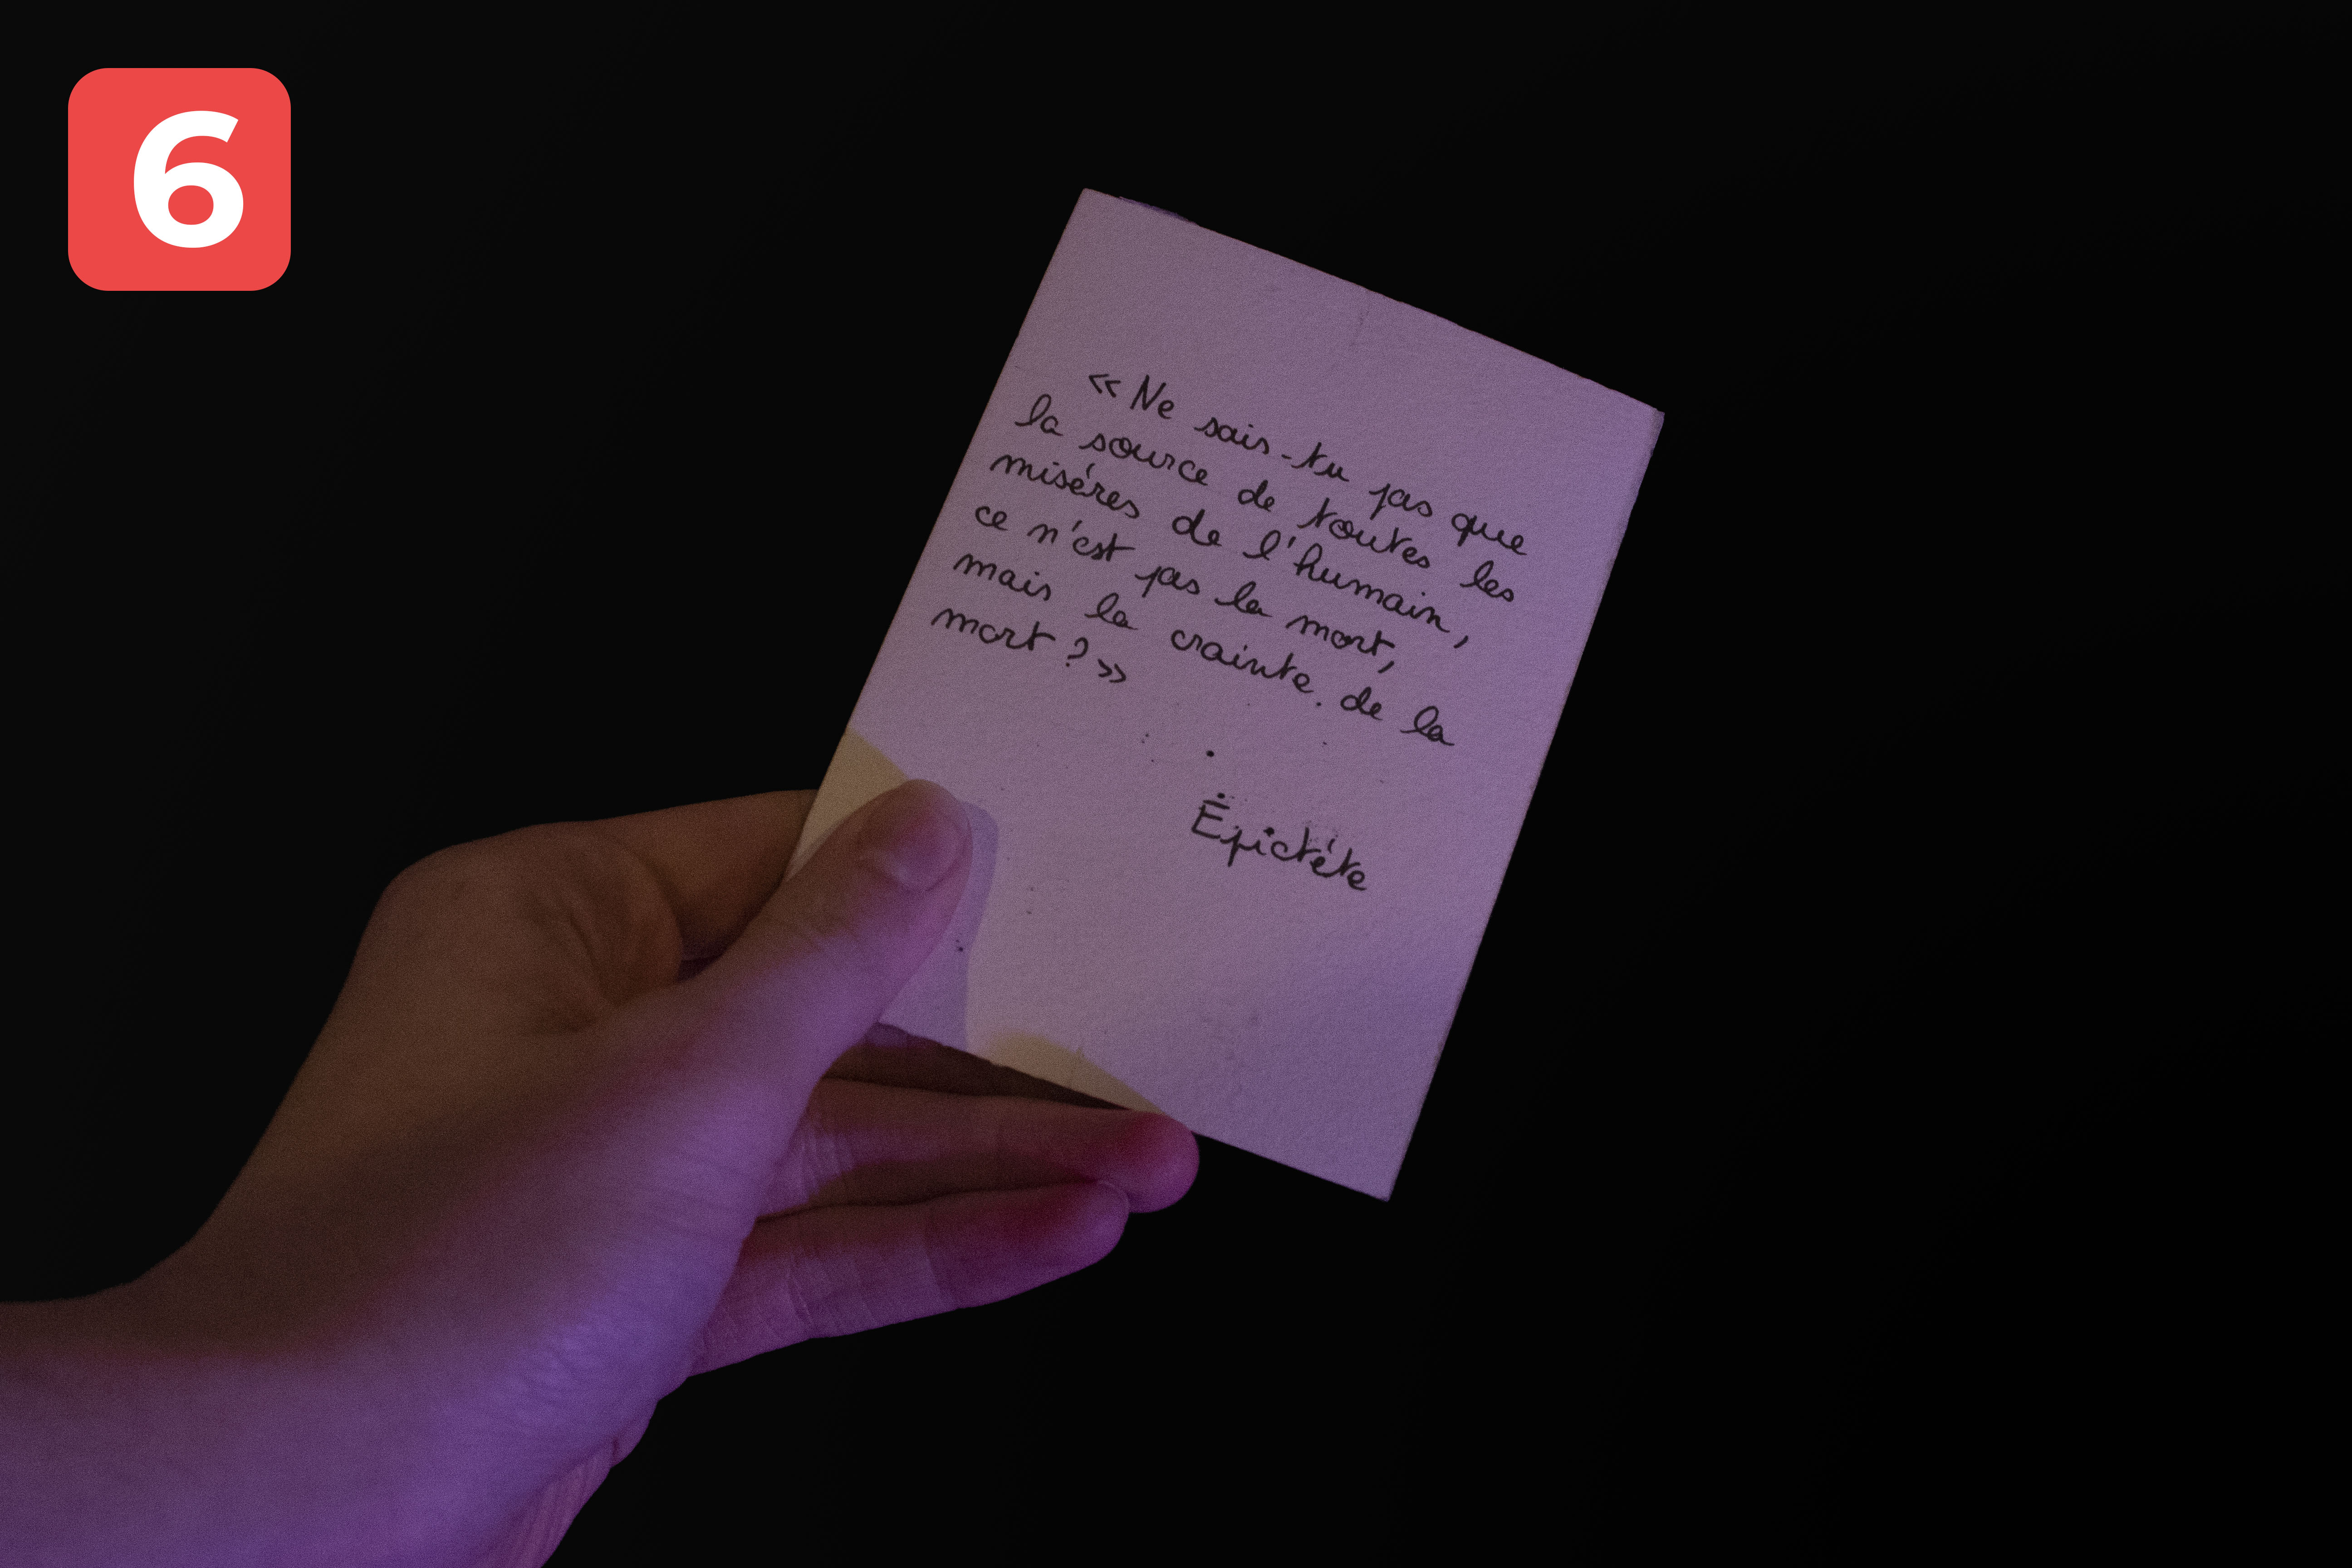 6
« Ne sais-tu pas que
la source de toutes les
miséres de l'humain,
ce n'est pas la mort,
mais la crainte de la
mort ? »
Épictéte